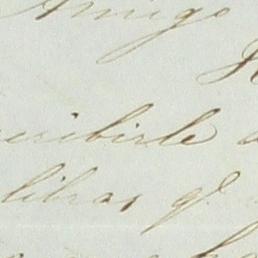 Amigo
cribirle a
libras q.e